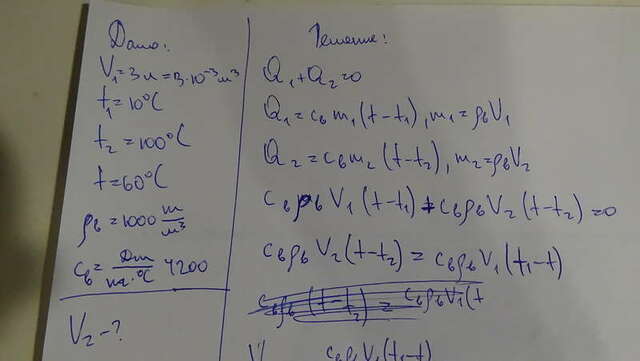 Дано:
V₁=3л=3·10⁻³м³
t₁=10°C
t₂=100°C
t=60°C
ρв=1000 м³
cв= Дж/кг·°C 4200
V₂-?
Решение:
Q₁+Q₂=0
Q₁=cвm₁(t-t₁), m₁=ρвV₁
Q₂=cвm₂(t-t₂), m₂=ρвV₂
cвρвV₁(t-t₁)+cвρвV₂(t-t₂)=0
cвρвV₂(t-t₂)=cвρвV₁(t₁-t)
cвρв(t-t₂)=cвρвV₁(t
cвρвV₁(t₁-t)